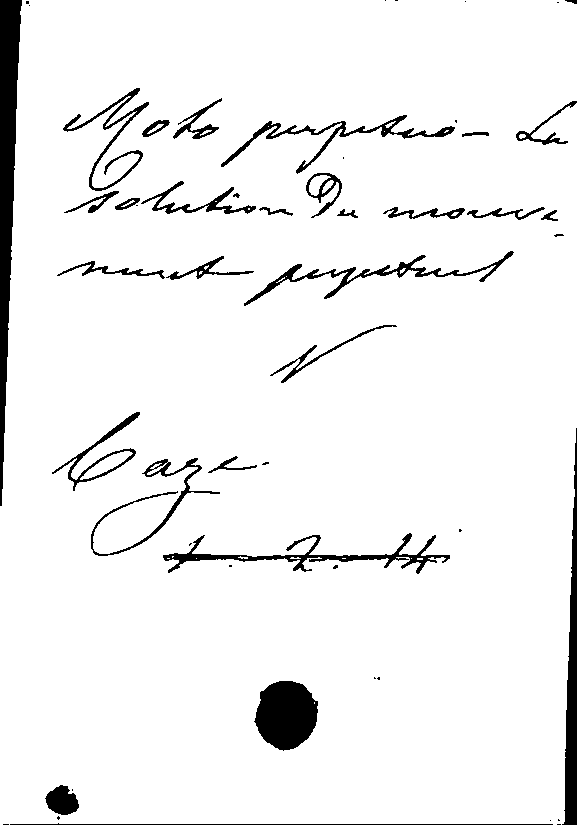 Moto perpetuo - La
solution Du mouve-
ment perpetuel
V
Caze.
1. 2. 14